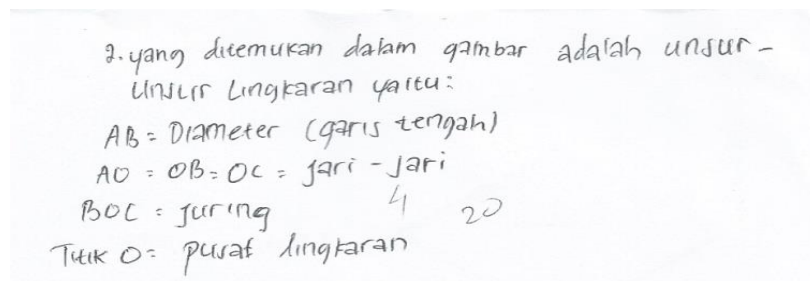 2. yang ditemukan dalam gambar adalah unsur-
Unsur Lingkaran yaitu:
AB = Diameter (garis tengah)
AO = OB = OC = jari - jari
BOC = juring
4 20
Titik O = pusat lingkaran